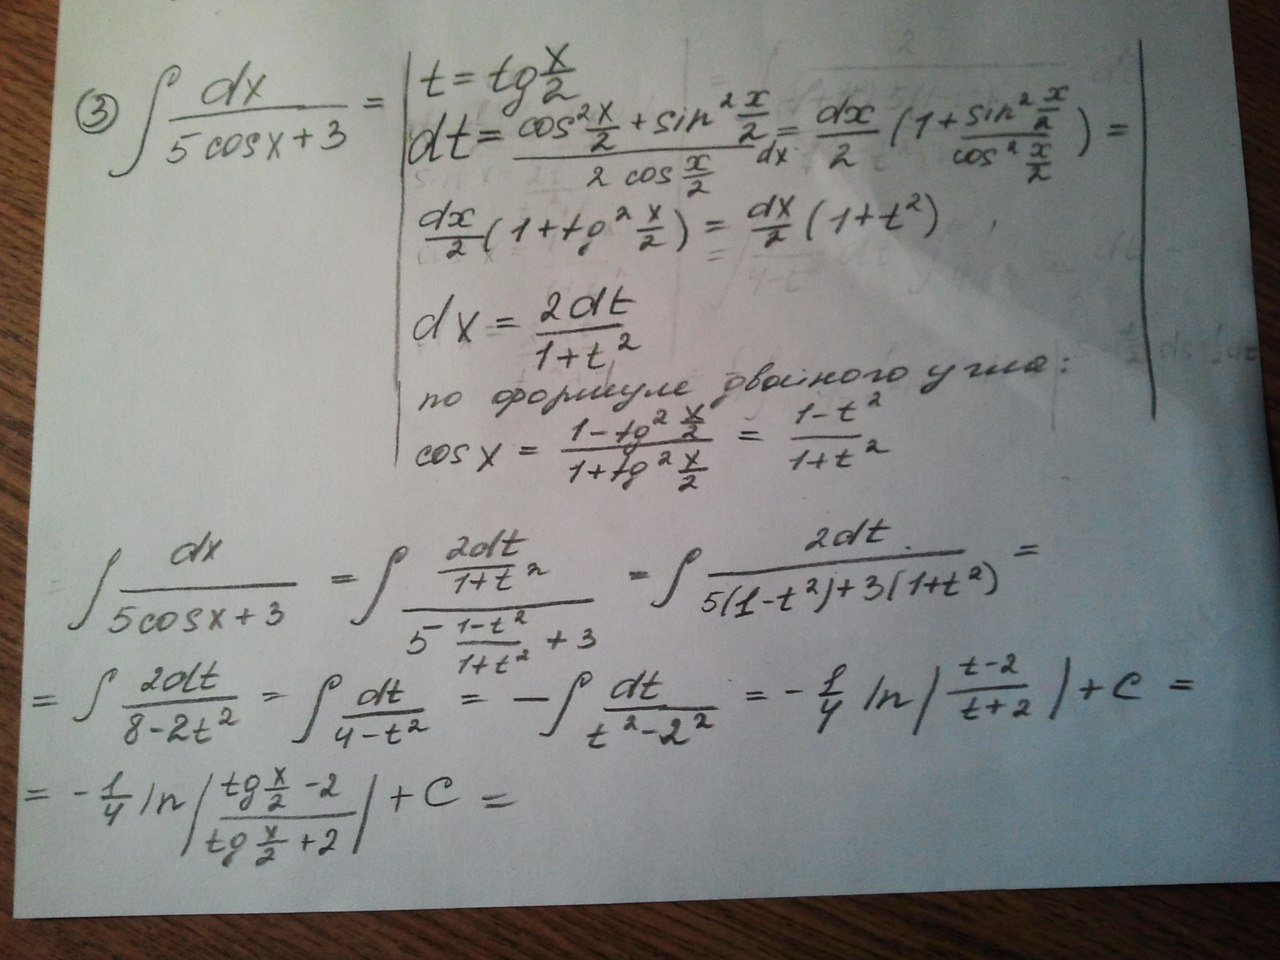 ③ ∫ dx/(5 cos x + 3) = | t = tg x/2
dt = (cos² x/2 + sin² x/2)/(2 cos x/2) dx = dx/2 (1 + sin² x/2 / cos² x/2) =
dx/2 (1 + tg² x/2) = dx/2 (1 + t²)
dx = 2dt/(1 + t²)
по формуле двойного угла:
cos x = (1 - tg² x/2)/(1 + tg² x/2) = (1 - t²)/(1 + t²) |
∫ dx/(5 cos x + 3) = ∫ (2dt/(1 + t²))/(5 (1 - t²)/(1 + t²) + 3) = ∫ 2dt/(5(1 - t²) + 3(1 + t²)) =
= ∫ 2dt/(8 - 2t²) = ∫ dt/(4 - t²) = - ∫ dt/(t² - 2²) = - 1/4 ln |(t - 2)/(t + 2)| + C =
= - 1/4 ln |(tg x/2 - 2)/(tg x/2 + 2)| + C =